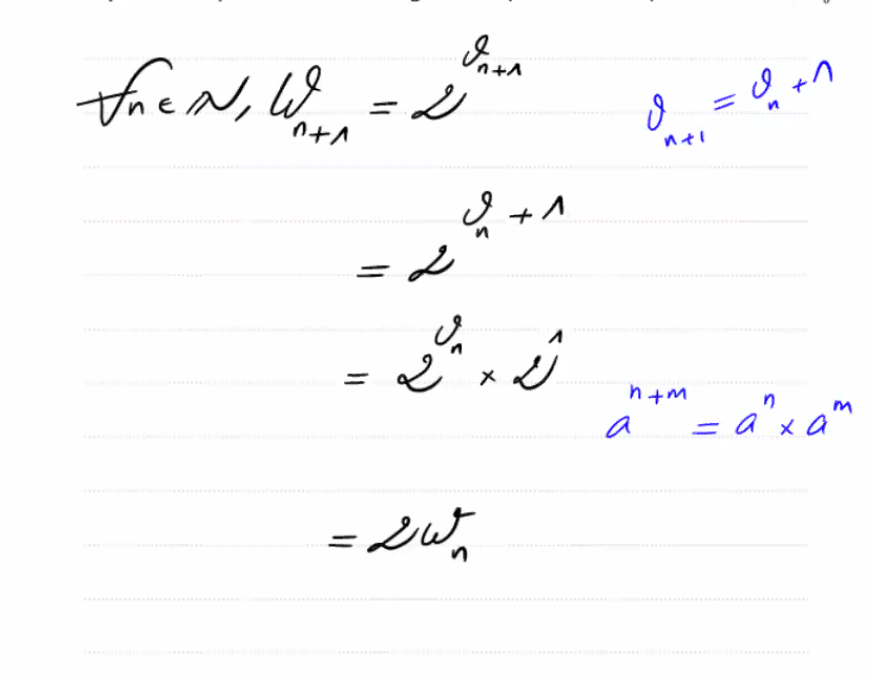 ∀n ∈ ℕ, W_{n+1} = 2^{v_{n+1}}
v_{n+1} = v_n + 1
= 2^{v_n + 1}
= 2^{v_n} × 2^1
a^{n+m} = a^n × a^m
= 2W_n